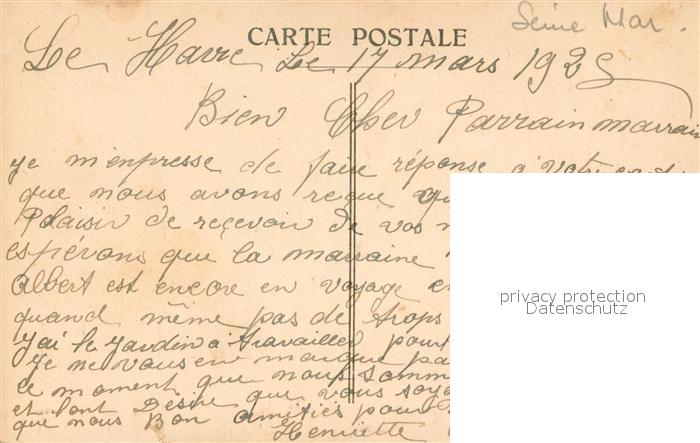 Seine Mar.
CARTE POSTALE
Le Havre Le 17 mars 1925
Bien Cher Parrain marrain
je m'enpresse de faire réponse à votre
que nous avons reçue
Plaisir de reçevoir de vos
espérons que la marraine
Albert est encore en voyage
quand même pas de trops
j'ai le jardin a travailler pour
je ne vous en marque pa
ce moment que nous somm
et sont Désire que vous soya
que nous Bon amitiés pour
Henriette
privacy protection
Datenschutz